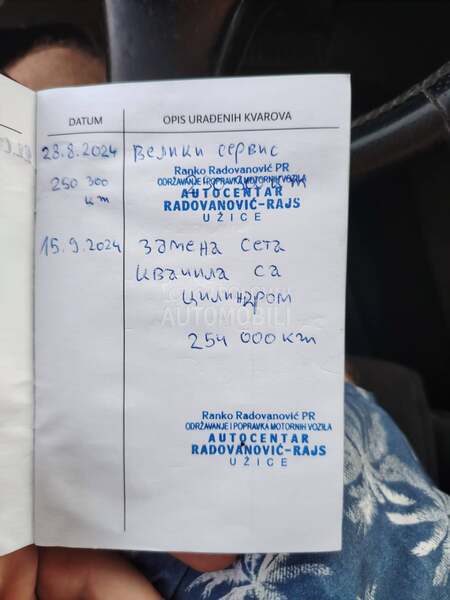 DATUM
OPIS URAĐENIH KVAROVA
28.8.2024 Велики сервис
250 300
km
Ranko Radovanović PR
ODRŽAVANJE I POPRAVKA MOTORNIH VOZILA
AUTOCENTAR
RADOVANOVIĆ-RAJS
UŽICE
15.9.2024 Замена сета
квачила са
цилиндром
AUTOMOBILI
254 000 km
Ranko Radovanović PR
ODRŽAVANJE I POPRAVKA MOTORNIH VOZILA
AUTOCENTAR
RADOVANOVIĆ-RAJS
UŽICE